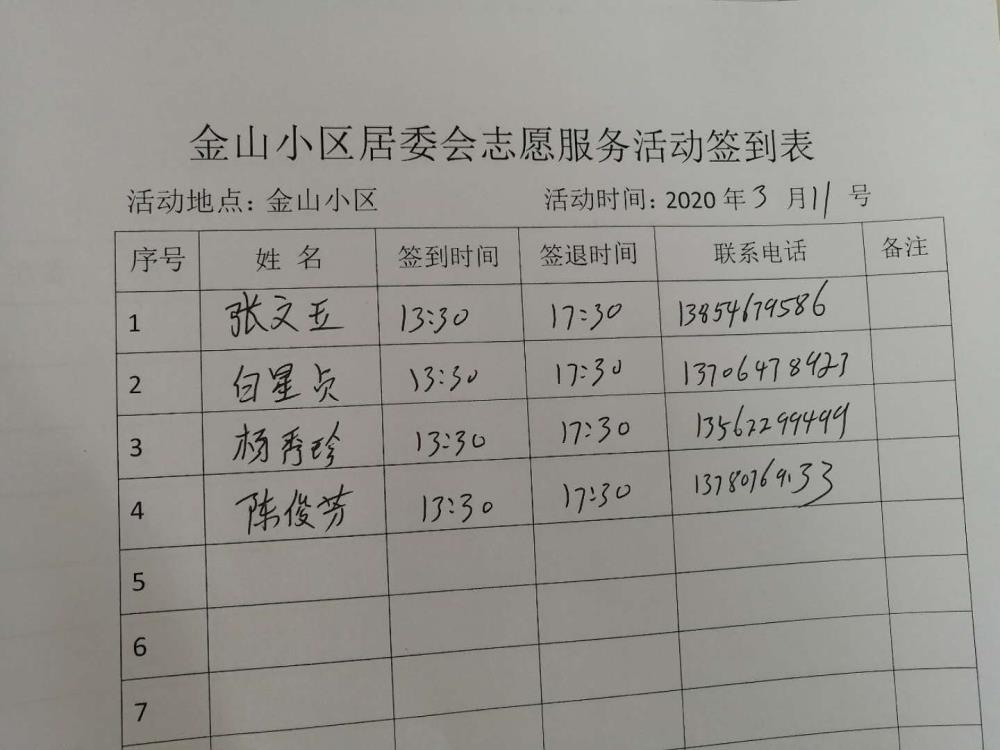 金山小区居委会志愿服务活动签到表
活动地点：金山小区 活动时间：2020年3月11号
序号 姓 名 签到时间 签退时间 联系电话 备注
1 张文五 13:30 17:30 13854679586
2 白星贞 13:30 17:30 13706478423
3 杨秀珍 13:30 17:30 13562299499
4 陈俊芳 13:30 17:30
5
6
7